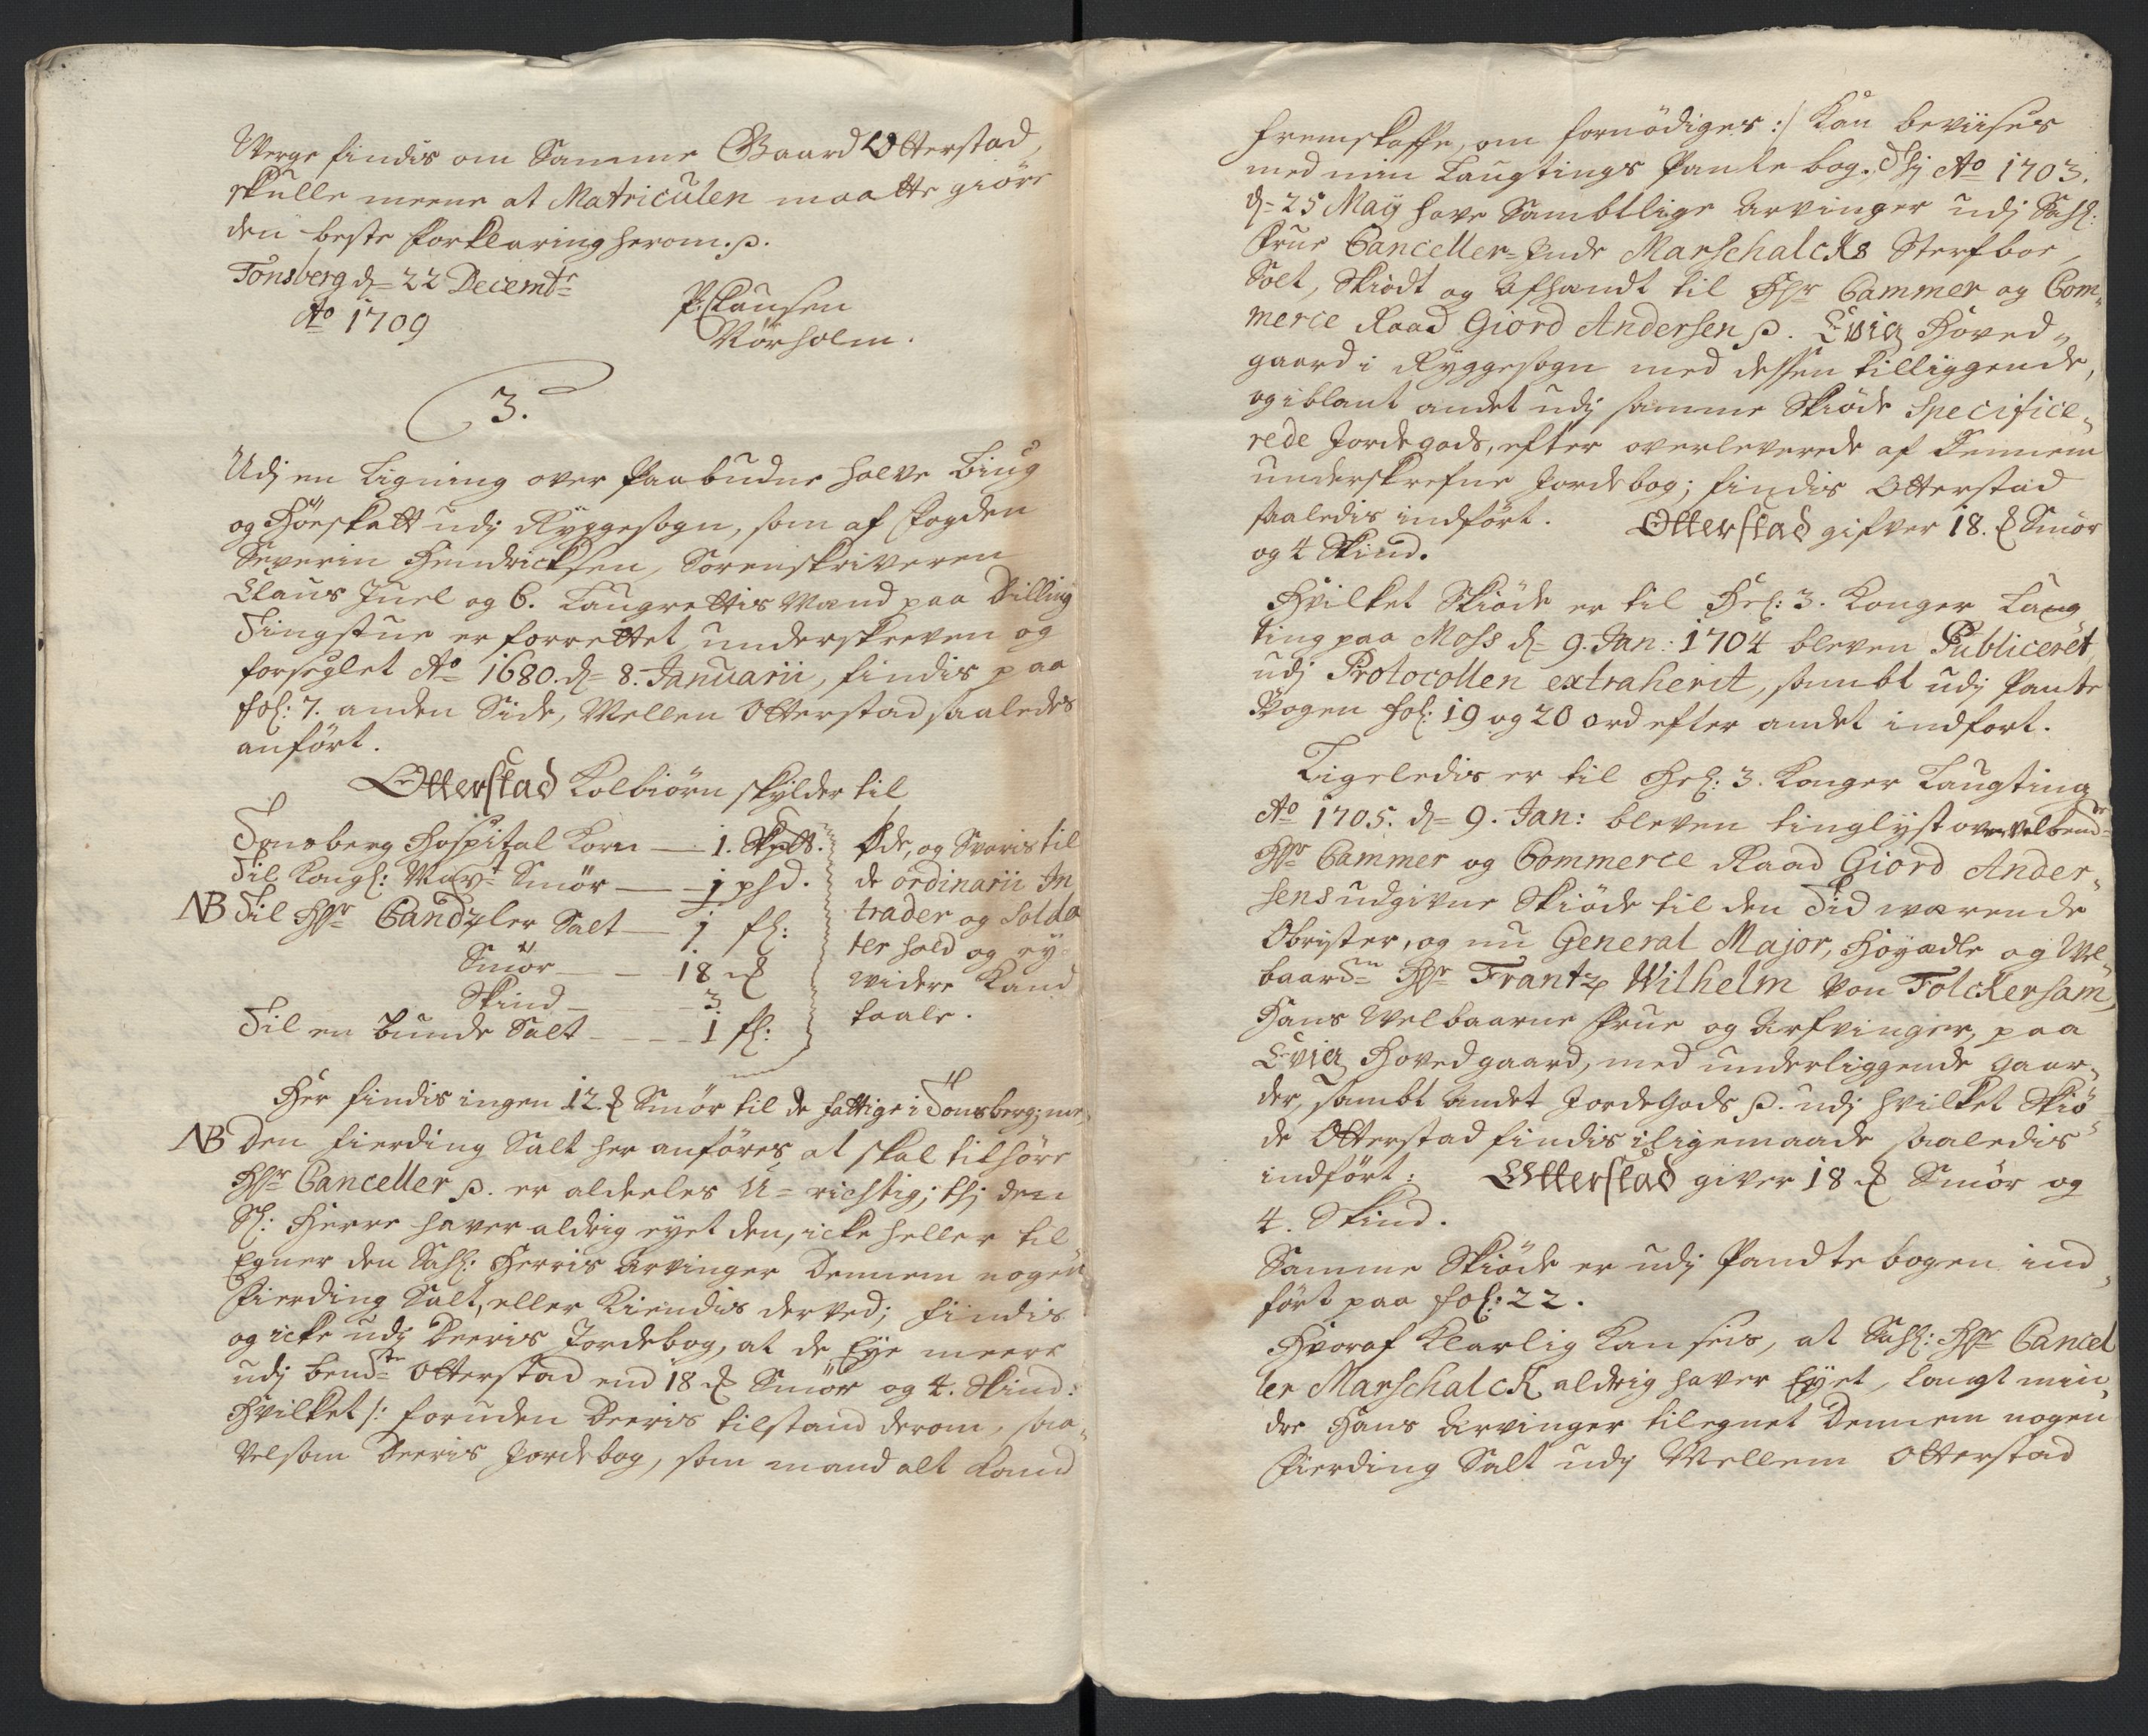 Werge findis om Samme Gaard Otterstad,
skulle meene at Matriculen maatte giöre
den beste forklaring herom. p.
Tonsberg d= 22 Decembr
Ao 1709
P: Clausen
Nörholm.
3.
Udj en Ligning over Paabudne halve Biug
og Höeskatt udj Ryggesogn, som af fogden
Severin Hendricksen, Sorenskriveren
Claus Juel og 6. Laugrettis Mænd paa Dilling
Tingstue er forrettet, underskreven og
forseglet Ao 1680. d= 8. Januarii, findis paa
fol: 7. anden Side, Mellem Otterstad saaledes
anfört.
Otterstad Kolbiörn skylder til
Tonsberg Hospital Korn — 1. Skpd.
Til Kongl: Mayt Smör — 1 phd.
NB Til Hr Candzler Salt — 1 fl:
Smör — 18 ℔
Skind — 3.
Til en bunde Salt — 1 fl:
Öde, og Svaris til
de ordinarii In
trader og Solda
ter hold og ey
widere Kand
taale.
Her findis ingen 12. ℔ Smör til de fattige i Tonsberg; me,,
NB Den fierding Salt her anföres, at skal tilhöre
Hr Canceller p. er aldeeles U= richtig; thj den
Sl: Herre haver aldrig eyet den, icke heller til
Egner den Sahl: Herris Arvinger Dennem nogen
fierding Salt, eller Kiendis derved; findis
og icke udj Deeris Jordebog, at de Eye meere
udj bendte Otterstad end 18 ℔ Smör og 4. Skind:
Hvilket /: foruden Deeris tilstand derom, saa,,
velsom Deeris Jordebog, som mand alt Kand
fremskaffe, om fornödiges :/ Kan beviises
med min Laugtings Pante bog. Thj Ao 1703.
d= 25 Maij have Samblige Arvinger udj Sahl:
frue Canceller= inde Marschalcks Sterfboe,
Solt, Skiödt og Afhændt til Hr Cammer og Com,,
merce Raad Giord Andersen p. Evig Hoved,,
gaard i Ryggesogn med dessen tilliggende,
og iblant andet udj samme Skiöde Specifice,,
rede Jordegods, efter overleverede af Dennem
underskrefne Jordebog; findis Otterstad
saaledis indfört. Otterstad gifver 18. ℔ Smör
og 4 Skind.
Hvilket Skiöde er til Hel: 3. Konger Laug
ting paa Moss d= 9. Jan: 1704 bleven Publiceret,
udj Protocollen extraherit, sambt udj Pante
Bogen fol: 19 og 20 ord efter andet indfört.
Ligeledis er til Hel: 3. Konger Laugting
Ao 1705. d= 9. Jan: bleven tinglyst over velbemdte
Hr Cammer og Commerce Raad Giord Ander,,
sens udgivne Skiöde til den Tid wærende
Obrister, og nu General Major, Höyædle og Vel,,
baardn Hr Frantz Wilhelm von Folckersam,
Hans Velbaarne frue og Arfvinger, paa
Evig Hovedgaard, med underliggende gaar,,
der, sambt andet Jorde Gods p. udj hvilket Skiö
de Otterstad findis iligemaade saaledis
indfört: Otterstad giver 18 ℔ Smör og
4. Skind.
Samme Skiöde er udj Pandtebogen ind,,
fört paa fol: 22.
Hvoraf klarlig kan seis, at Sahl: Hr Cancel
ler Marschalck aldrig haver Eyet, langt min,,
dre Hans Arvinger tilegnet Dennem nogen
fierding Salt udj Mellem Otterstad